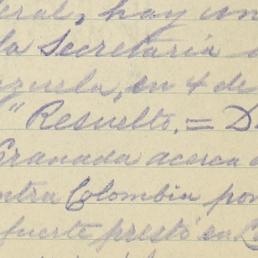 eral, hay un
la Secretaria
zuela, en 4 de
"Resuelto. = D
Granada acerca
ntra Colombia por
fuerte prestó en C